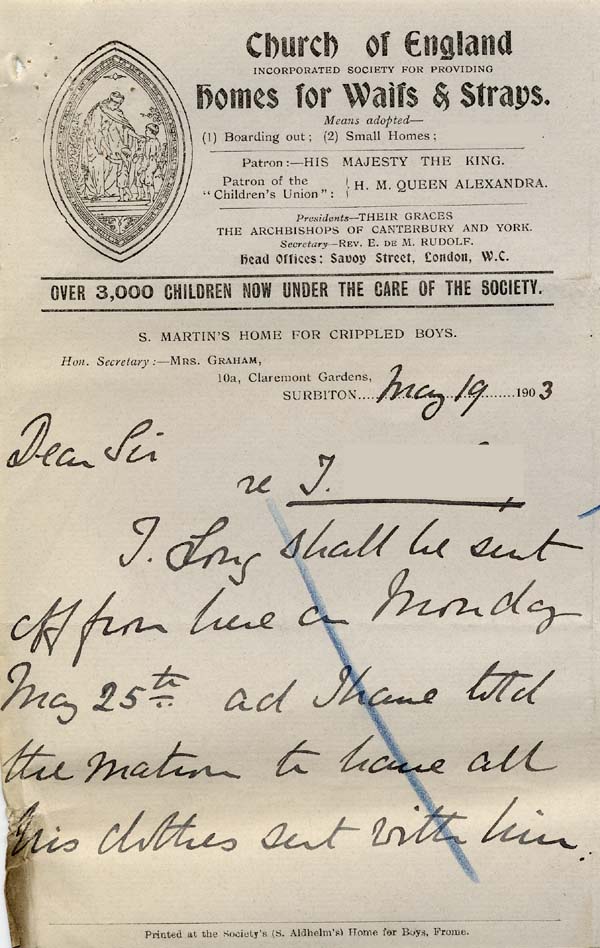 Church of England
INCORPORATED SOCIETY FOR PROVIDING
Homes for Waifs & Strays.
Means adopted—
(1) Boarding out; (2) Small Homes;
Patron:—HIS MAJESTY THE KING.
Patron of the "Children's Union": } H. M. QUEEN ALEXANDRA.
Presidents—THEIR GRACES
THE ARCHBISHOPS OF CANTERBURY AND YORK.
Secretary—REV. E. DE M. RUDOLF.
Head Offices: Savoy Street, London, W.C.
OVER 3,000 CHILDREN NOW UNDER THE CARE OF THE SOCIETY.
S. MARTIN'S HOME FOR CRIPPLED BOYS.
Hon. Secretary:—MRS. GRAHAM,
10a, Claremont Gardens,
SURBITON.....May 19.......1903
Dear Sir
re T.
T. Long shall be sent
off from here on Monday
May 25th ad I have told
the matron to have all
his clothes sent with him.
Printed at the Society's (S. Aldhelm's) Home for Boys, Frome.